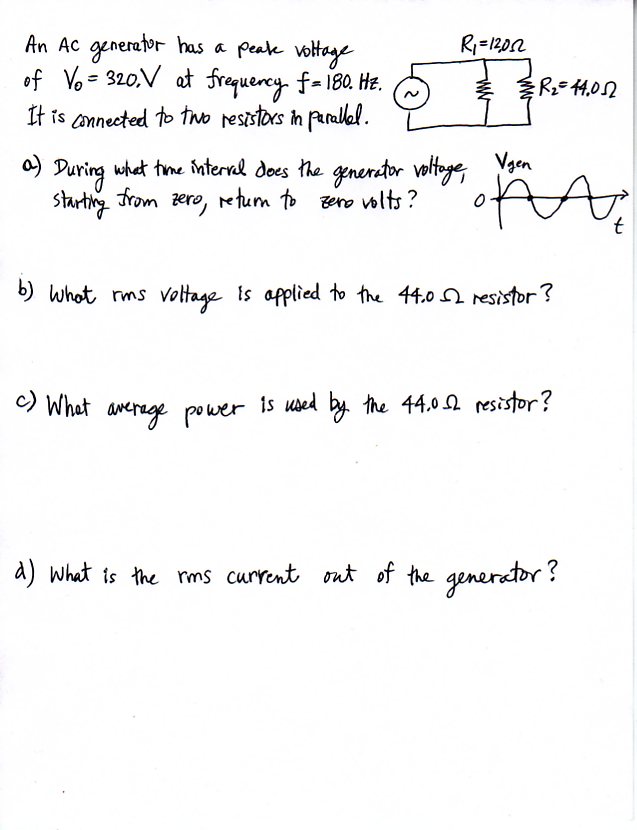 An AC generator has a peak voltage
of V₀ = 320. V at frequency f = 180. Hz.
It is connected to two resistors in parallel.
R₁=120Ω
~
R₂=44.0Ω
a) During what time interval does the generator voltage,
starting from zero, return to zero volts?
Vgen
0
t
b) What rms voltage is applied to the 44.0 Ω resistor?
c) What average power is used by the 44.0 Ω resistor?
d) What is the rms current out of the generator?